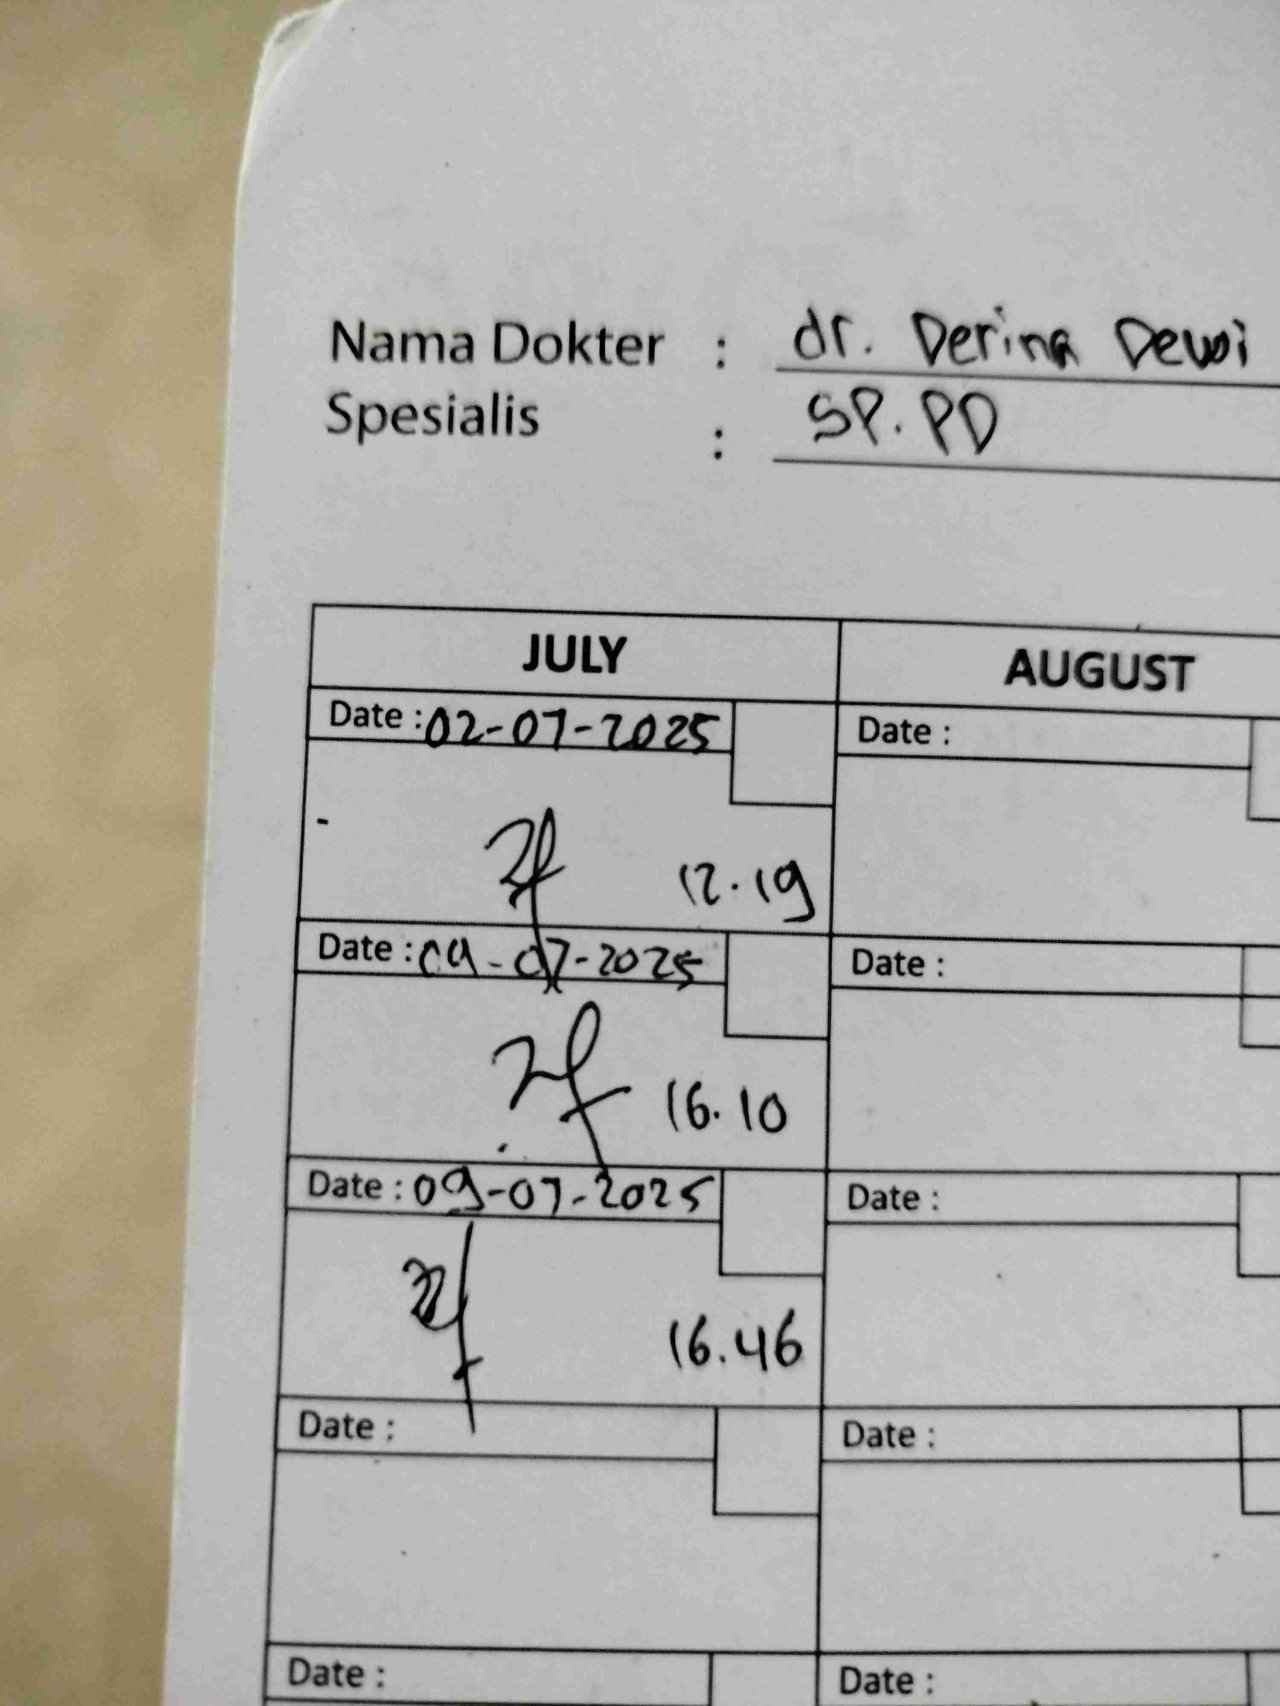 Nama Dokter : dr. Derina Dewi
Spesialis : SP. PD
JULY AUGUST
Date : 02-07-2025 Date :
12.19
Date : 09-07-2025 Date :
16.10
Date : 09-07-2025 Date :
16.46
Date : Date :
Date : Date :